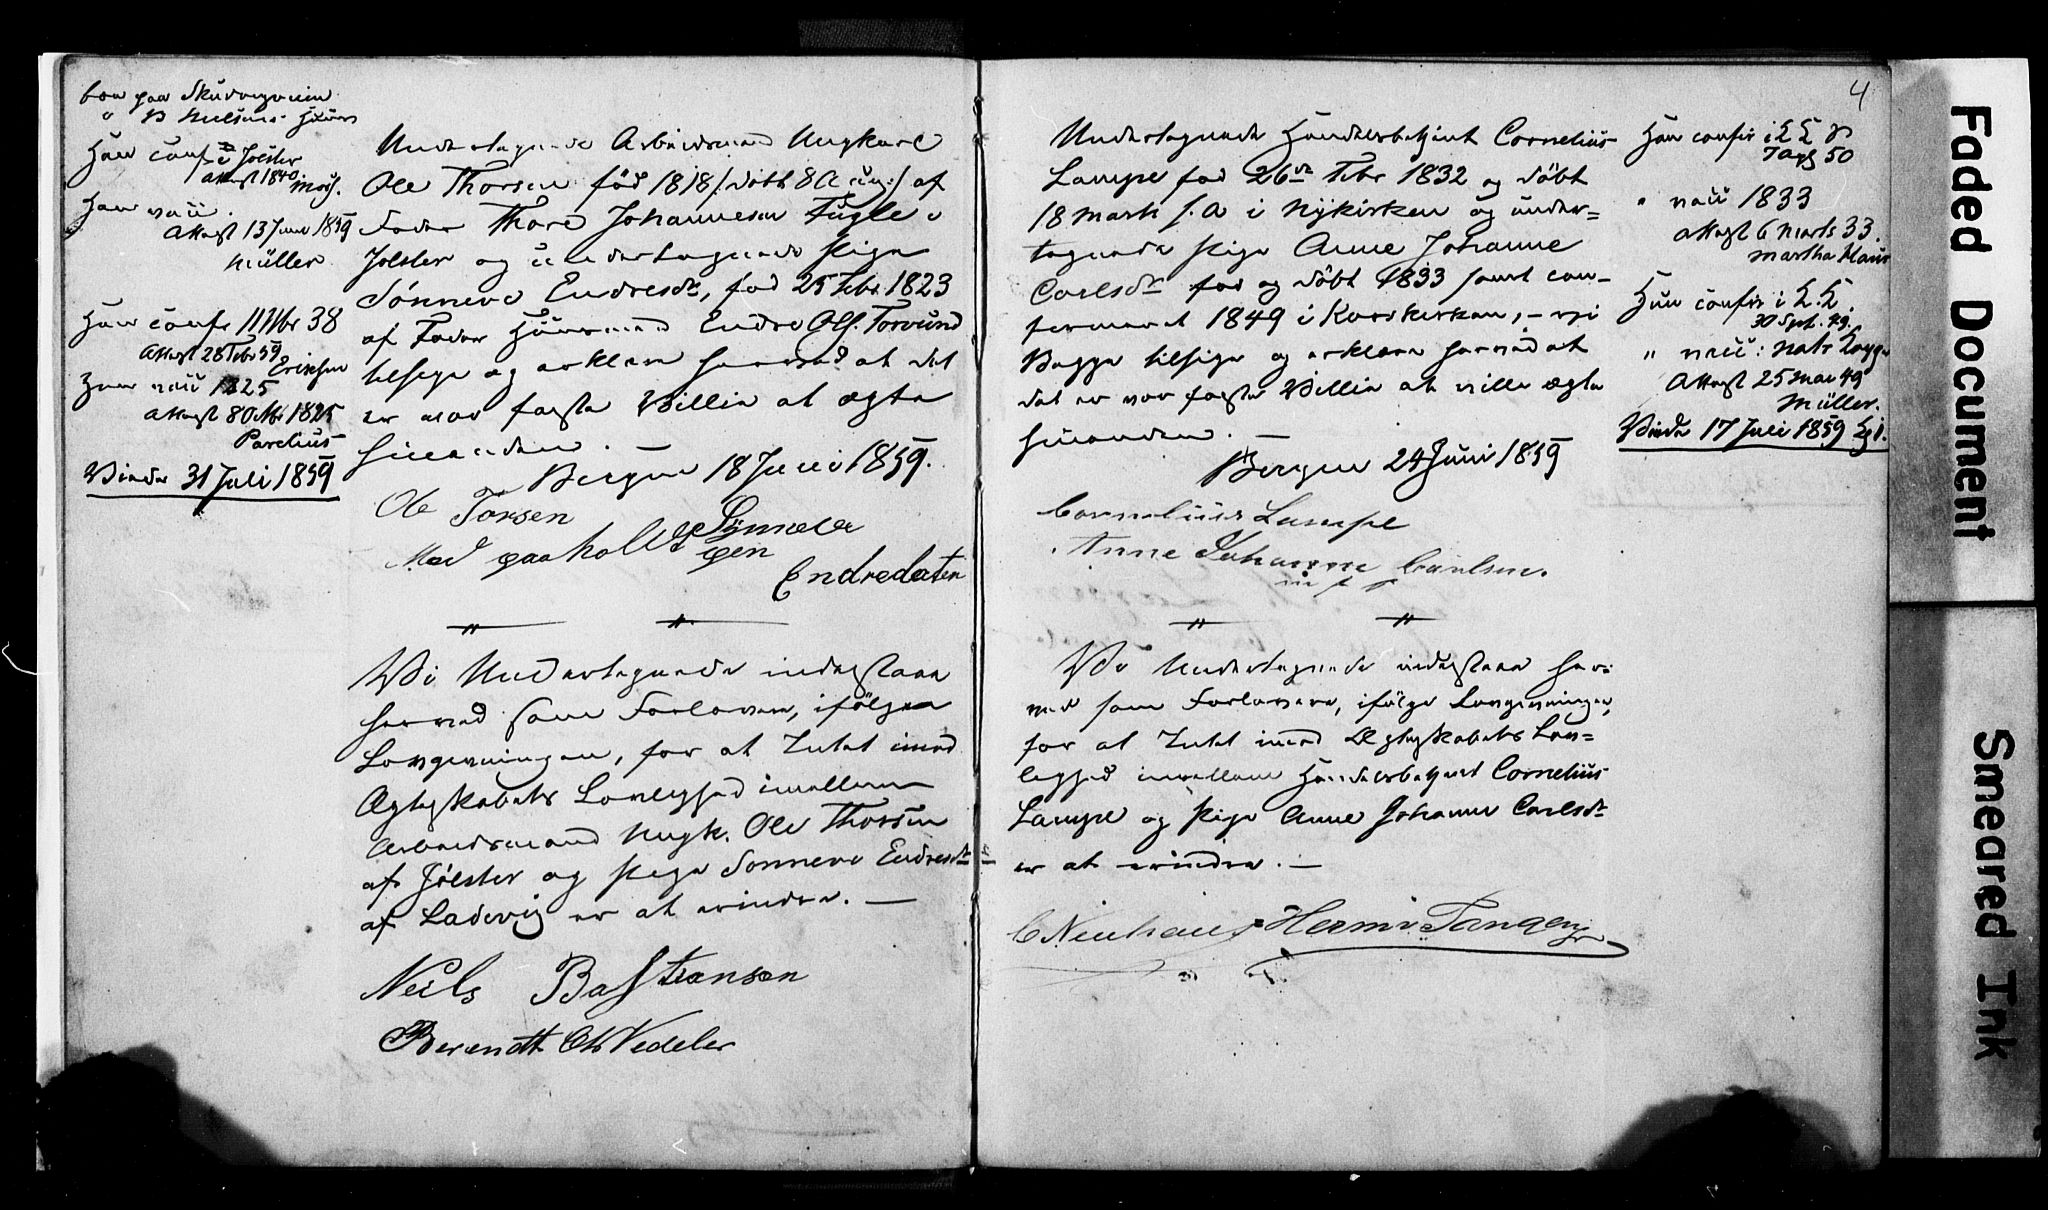 boer paa Skudevigveien
B Nielsens Huus
Han conf i Jølster
Attest 1840
Han vacc.
Attest 13 Juni 1859
Müller
Hun confr 38
Attest 28 Febr 59
Erichsen
Hun vacc 1825
Attest 8 Octbr 1825
Parelius
Viede 31 Juli 1859
Undertegnede Arbeidsmand Ungkarl
Ole Thorsen fød 1818 /: døbt 8 Aug :/ af
Fader Thore Johannesen Fugle i
Jølster og undertegnede Pige
Sønneve Endresdr, fød 25 Febr 1823
af Fader Huusmand Endre Ols. Torvund
tilsige og erklære herved at det
er vor faste Villie at ægte
hinanden. —
Bergen 18 Juni 1859.
Ole Torsen
Sønneve
Med paaholdt pen
Endredater
Vi Undertegnede indestaae
herved som Forlovere, ifølge
Lovgivningen, for at Intet imod
Ægteskabets Lovlighed imellem
Arbeidsmand Ungk. Ole Thorsen
af Jølster og Pige Sønneve Endresdr
af Ladevig er at erindre. —
Neils Bastiansen
Berendt Ols Vedeler
4
Undertegnede Handelsbetjent Cornelius
Lampe fød 26de Febr 1832 og døbt
18 Marts s. A i Nykirken og under=
tegnede Pige Anne Johanne
Carlsdr fød og døbt 1833 samt con-
fermeret 1849 i Korskirken, – vi
Begge tilsige og erklære herved at
det er vor faste Villie at ville ægte
hinanden. —
Bergen 24 Juni 1859
Cornelius Lampe
Anne Johanne Carlsen.
m p p
Vi Undertegnede indestaae her-
ved som Forlovere, ifølge Lovgivningen,
for at Intet imod Ægteskabets Lov=
lighed imellem Handelsbetjent Cornelius
Lampe og Pige Anne Johanne Carlsdr
er at erindre. —
C Neuhaus Herm: Tangen
Han confr i
7 Apl 50
" vacc 1833
Attest 6 Marts 33.
Martha
Hun confr i
30 Spt. 49.
" vacc: natr
Attest 25 Mai 49
Müller.
Viede 17 Juli 1859
Faded Document
Smeared Ink